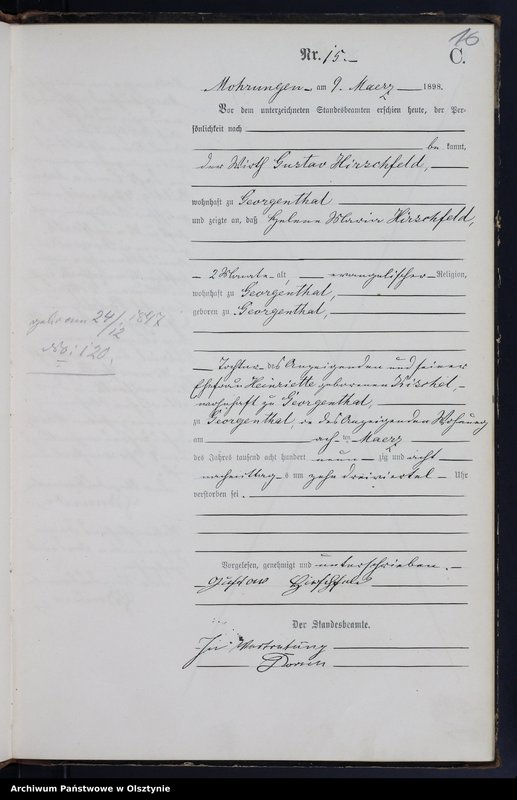 16
Nr. 15.
C.
Mohrungen am 9. Maerz 1898.
Vor dem unterzeichneten Standesbeamten erschien heute, der Per-
sönlichkeit nach
be kannt,
der Wirth Gustav Hirschfeld,
wohnhaft zu Georgenthal
und zeigte an, daß Helene Maria Hirschfeld,
2 Monate alt evangelischer Religion,
wohnhaft zu Georgenthal,
geboren zu Georgenthal,
geboren am 24/12 1897
No: 120.
Tochter des Anzeigenden und seiner
Ehefrau Henriette geborenen
wohnhaft zu Georgenthal,
zu Georgenthal, in des Anzeigenden Wohnung
am acht ten Maerz
des Jahres tausend acht hundert neun zig und acht
nachmittag s um zehn dreiviertel Uhr
verstorben sei.
Vorgelesen, genehmigt und unterschrieben.
Gustav Hirschfeld
Der Standesbeamte.
In Vertretung
Archiwum Państwowe w Olsztynie